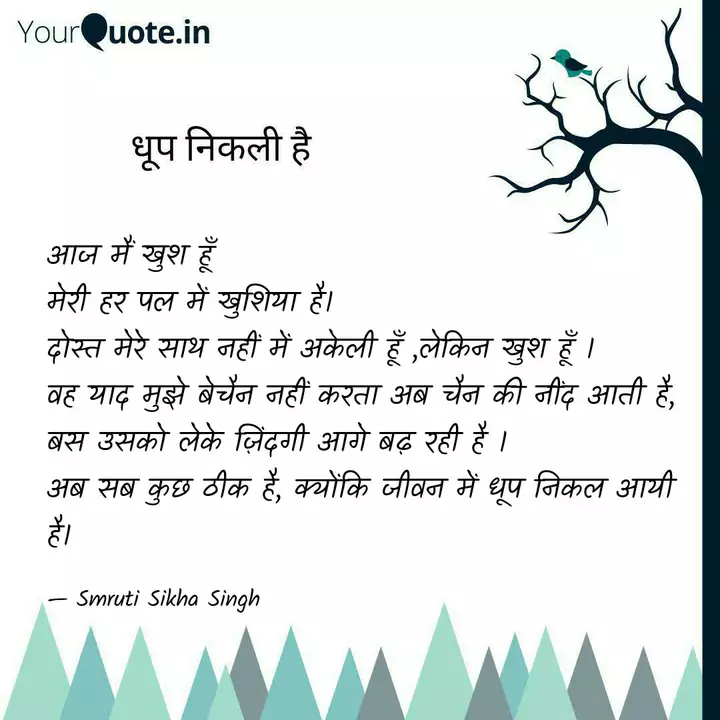 YourQuote.in
धूप निकली है
आज मैं खुश हूँ
मेरी हर पल में खुशिया है।
दोस्त मेरे साथ नहीं में अकेली हूँ ,लेकिन खुश हूँ ।
वह याद मुझे बेचैन नहीं करता अब चैन की नींद आती है,
बस उसको लेके ज़िंदगी आगे बढ़ रही है ।
अब सब कुछ ठीक है, क्योंकि जीवन में धूप निकल आयी
है।
— Smruti Sikha Singh